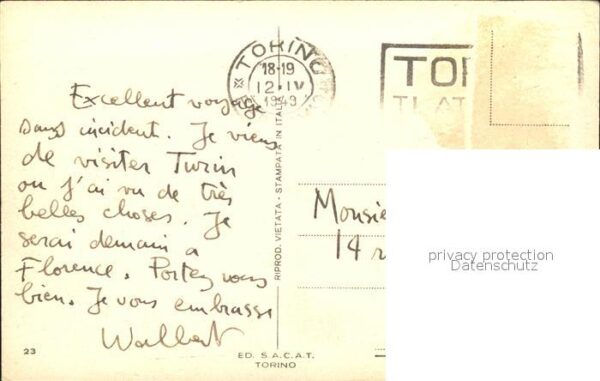 TORINO
18-19
12·IV
1949
TOR
TI AT
Excellent voyage
sans incident. Je viens
de visiter Turin
ou j'ai vu de très
belles choses. Je
serai demain a
Florence. Portez vous
bien. Je vous embrasse
RIPROD. VIETATA - STAMPATA IN ITALIA
Monsie
14 r
privacy protection
Datenschutz
23
ED. S.A.C.A.T.
TORINO